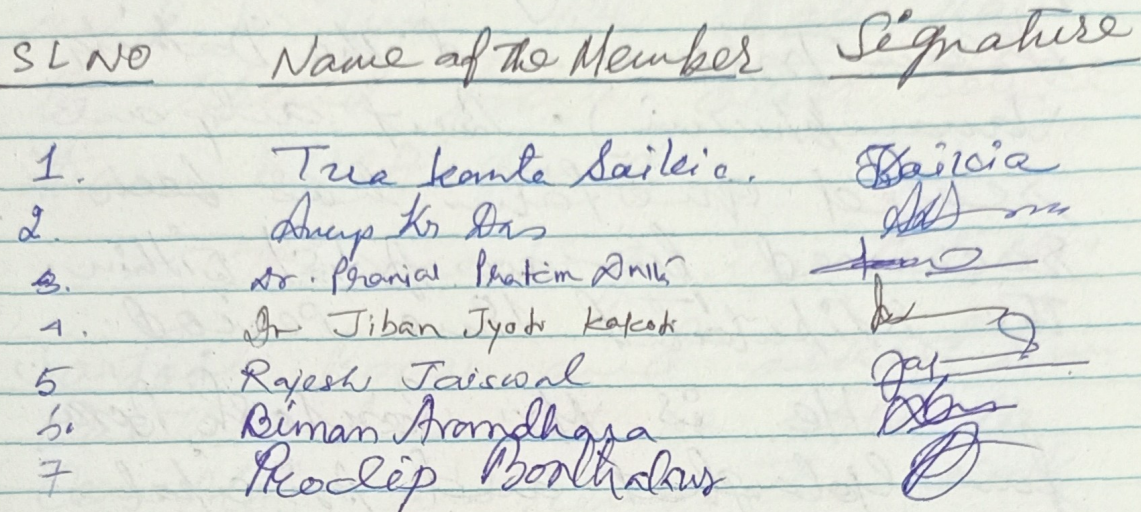 SL NO Name of the Member Signature
1. Tua Kanta Saikia. Saikia
2. Anup Kr Das
3. Dr. Pranjal Pratim
4. Dr Jiban Jyoti Kakoti
5 Rajesh Jaiswal
6. Biman Arandhara
7 Prodip Borthakur